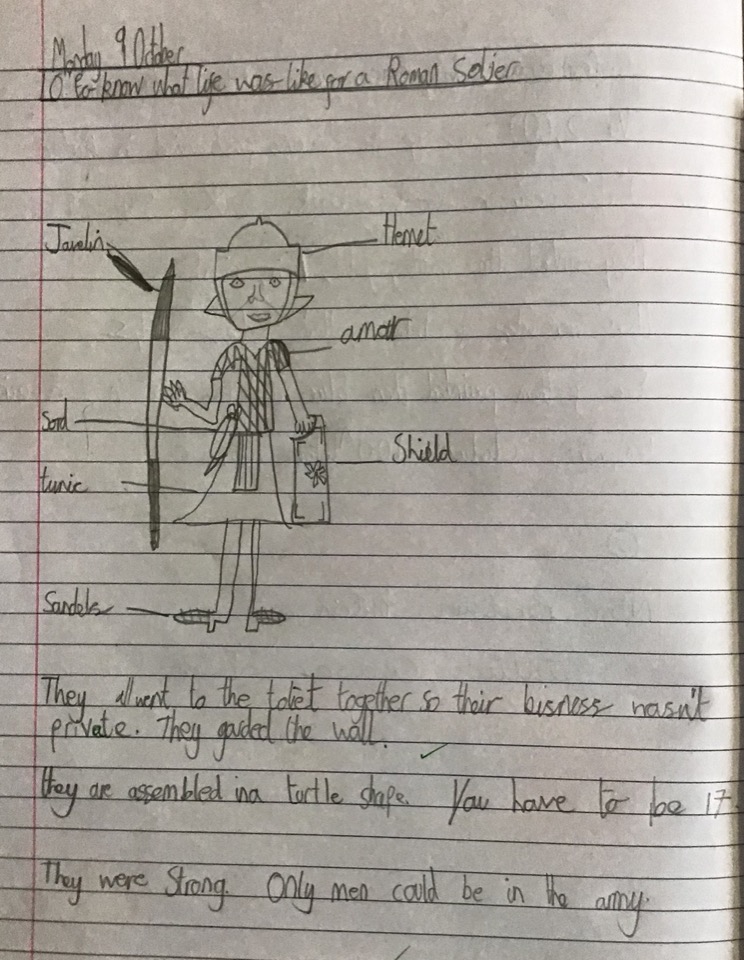 Monday 9 October
O to know what life was like for a Roman Soljer
Javelin
Hemet
amor
Sord
Shield
tunic
Sandels
They all went to the toliet together so their bisness wasn't
private. They gaurded the wall.
they are assembled in a turtle shape. You have to be 17.
They were Strong. Only men could be in the army.